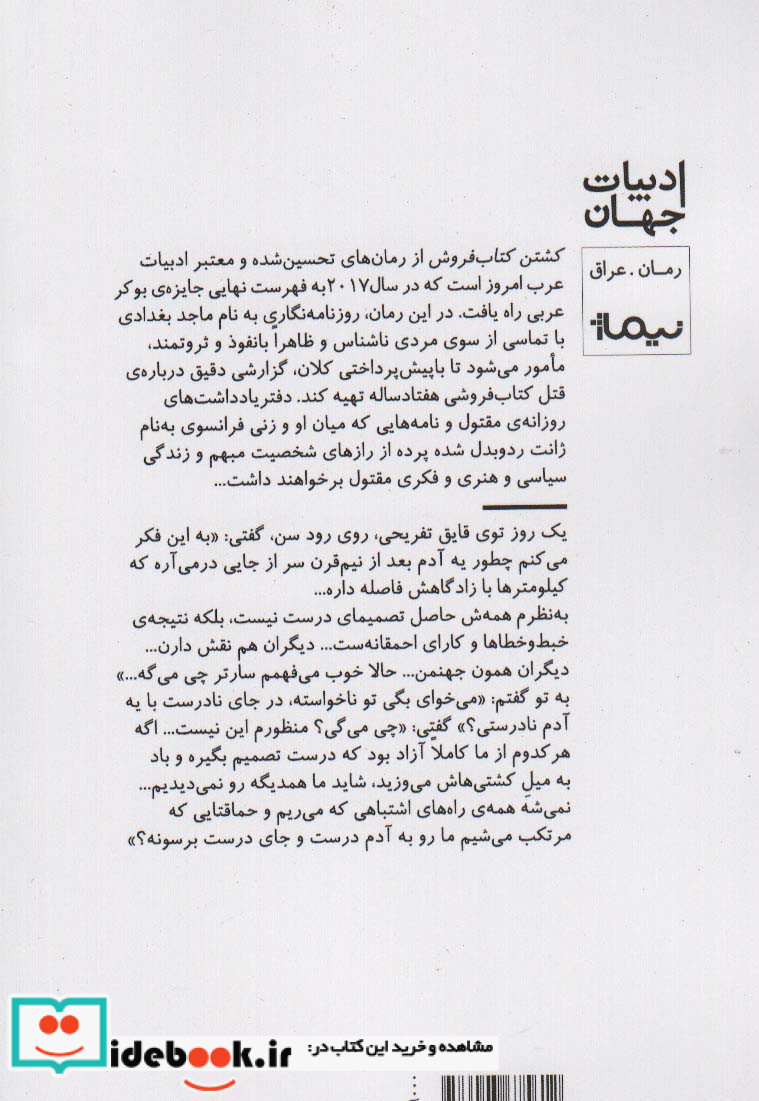 ادبیات
جهان
رمان . عراق
نیماژ
کشتن کتاب‌فروش از رمان‌های تحسین‌شده و معتبر ادبیات
عرب امروز است که در سال ۲۰۱۷ به فهرست نهایی جایزه‌ی بوکر
عربی راه یافت. در این رمان، روزنامه‌نگاری به نام ماجد بغدادی
با تماسی از سوی مردی ناشناس و ظاهراً بانفوذ و ثروتمند،
مأمور می‌شود تا باپیش‌پرداختی کلان، گزارشی دقیق درباره‌ی
قتل کتاب‌فروشی هفتادساله تهیه کند. دفتریادداشت‌های
روزانه‌ی مقتول و نامه‌هایی که میان او و زنی فرانسوی به‌نام
ژانت ردوبدل شده پرده از رازهای شخصیت مبهم و زندگی
سیاسی و هنری و فکری مقتول برخواهند داشت...
یک روز توی قایق تفریحی، روی رود سن، گفتی: «به این فکر
می‌کنم چطور یه آدم بعد از نیم‌قرن سر از جایی درمی‌آره که
کیلومترها با زادگاهش فاصله داره...
به‌نظرم همه‌ش حاصل تصمیمای درست نیست، بلکه نتیجه‌ی
خبط‌وخطاها و کارای احمقانه‌ست... دیگران هم نقش دارن...
دیگران همون جهنمن... حالا خوب می‌فهمم سارتر چی می‌گه...»
به تو گفتم: «می‌خوای بگی تو ناخواسته، در جای نادرست با یه
آدم نادرستی؟» گفتی: «چی می‌گی؟ منظورم این نیست... اگه
هرکدوم از ما کاملاً آزاد بود که درست تصمیم بگیره و باد
به میلِ کشتی‌هاش می‌وزید، شاید ما همدیگه رو نمی‌دیدیم...
نمی‌شه همه‌ی راه‌های اشتباهی که می‌ریم و حماقتایی که
مرتکب می‌شیم ما رو به آدم درست و جای درست برسونه؟»
مشاهده و خرید این کتاب در:
idebook.ir